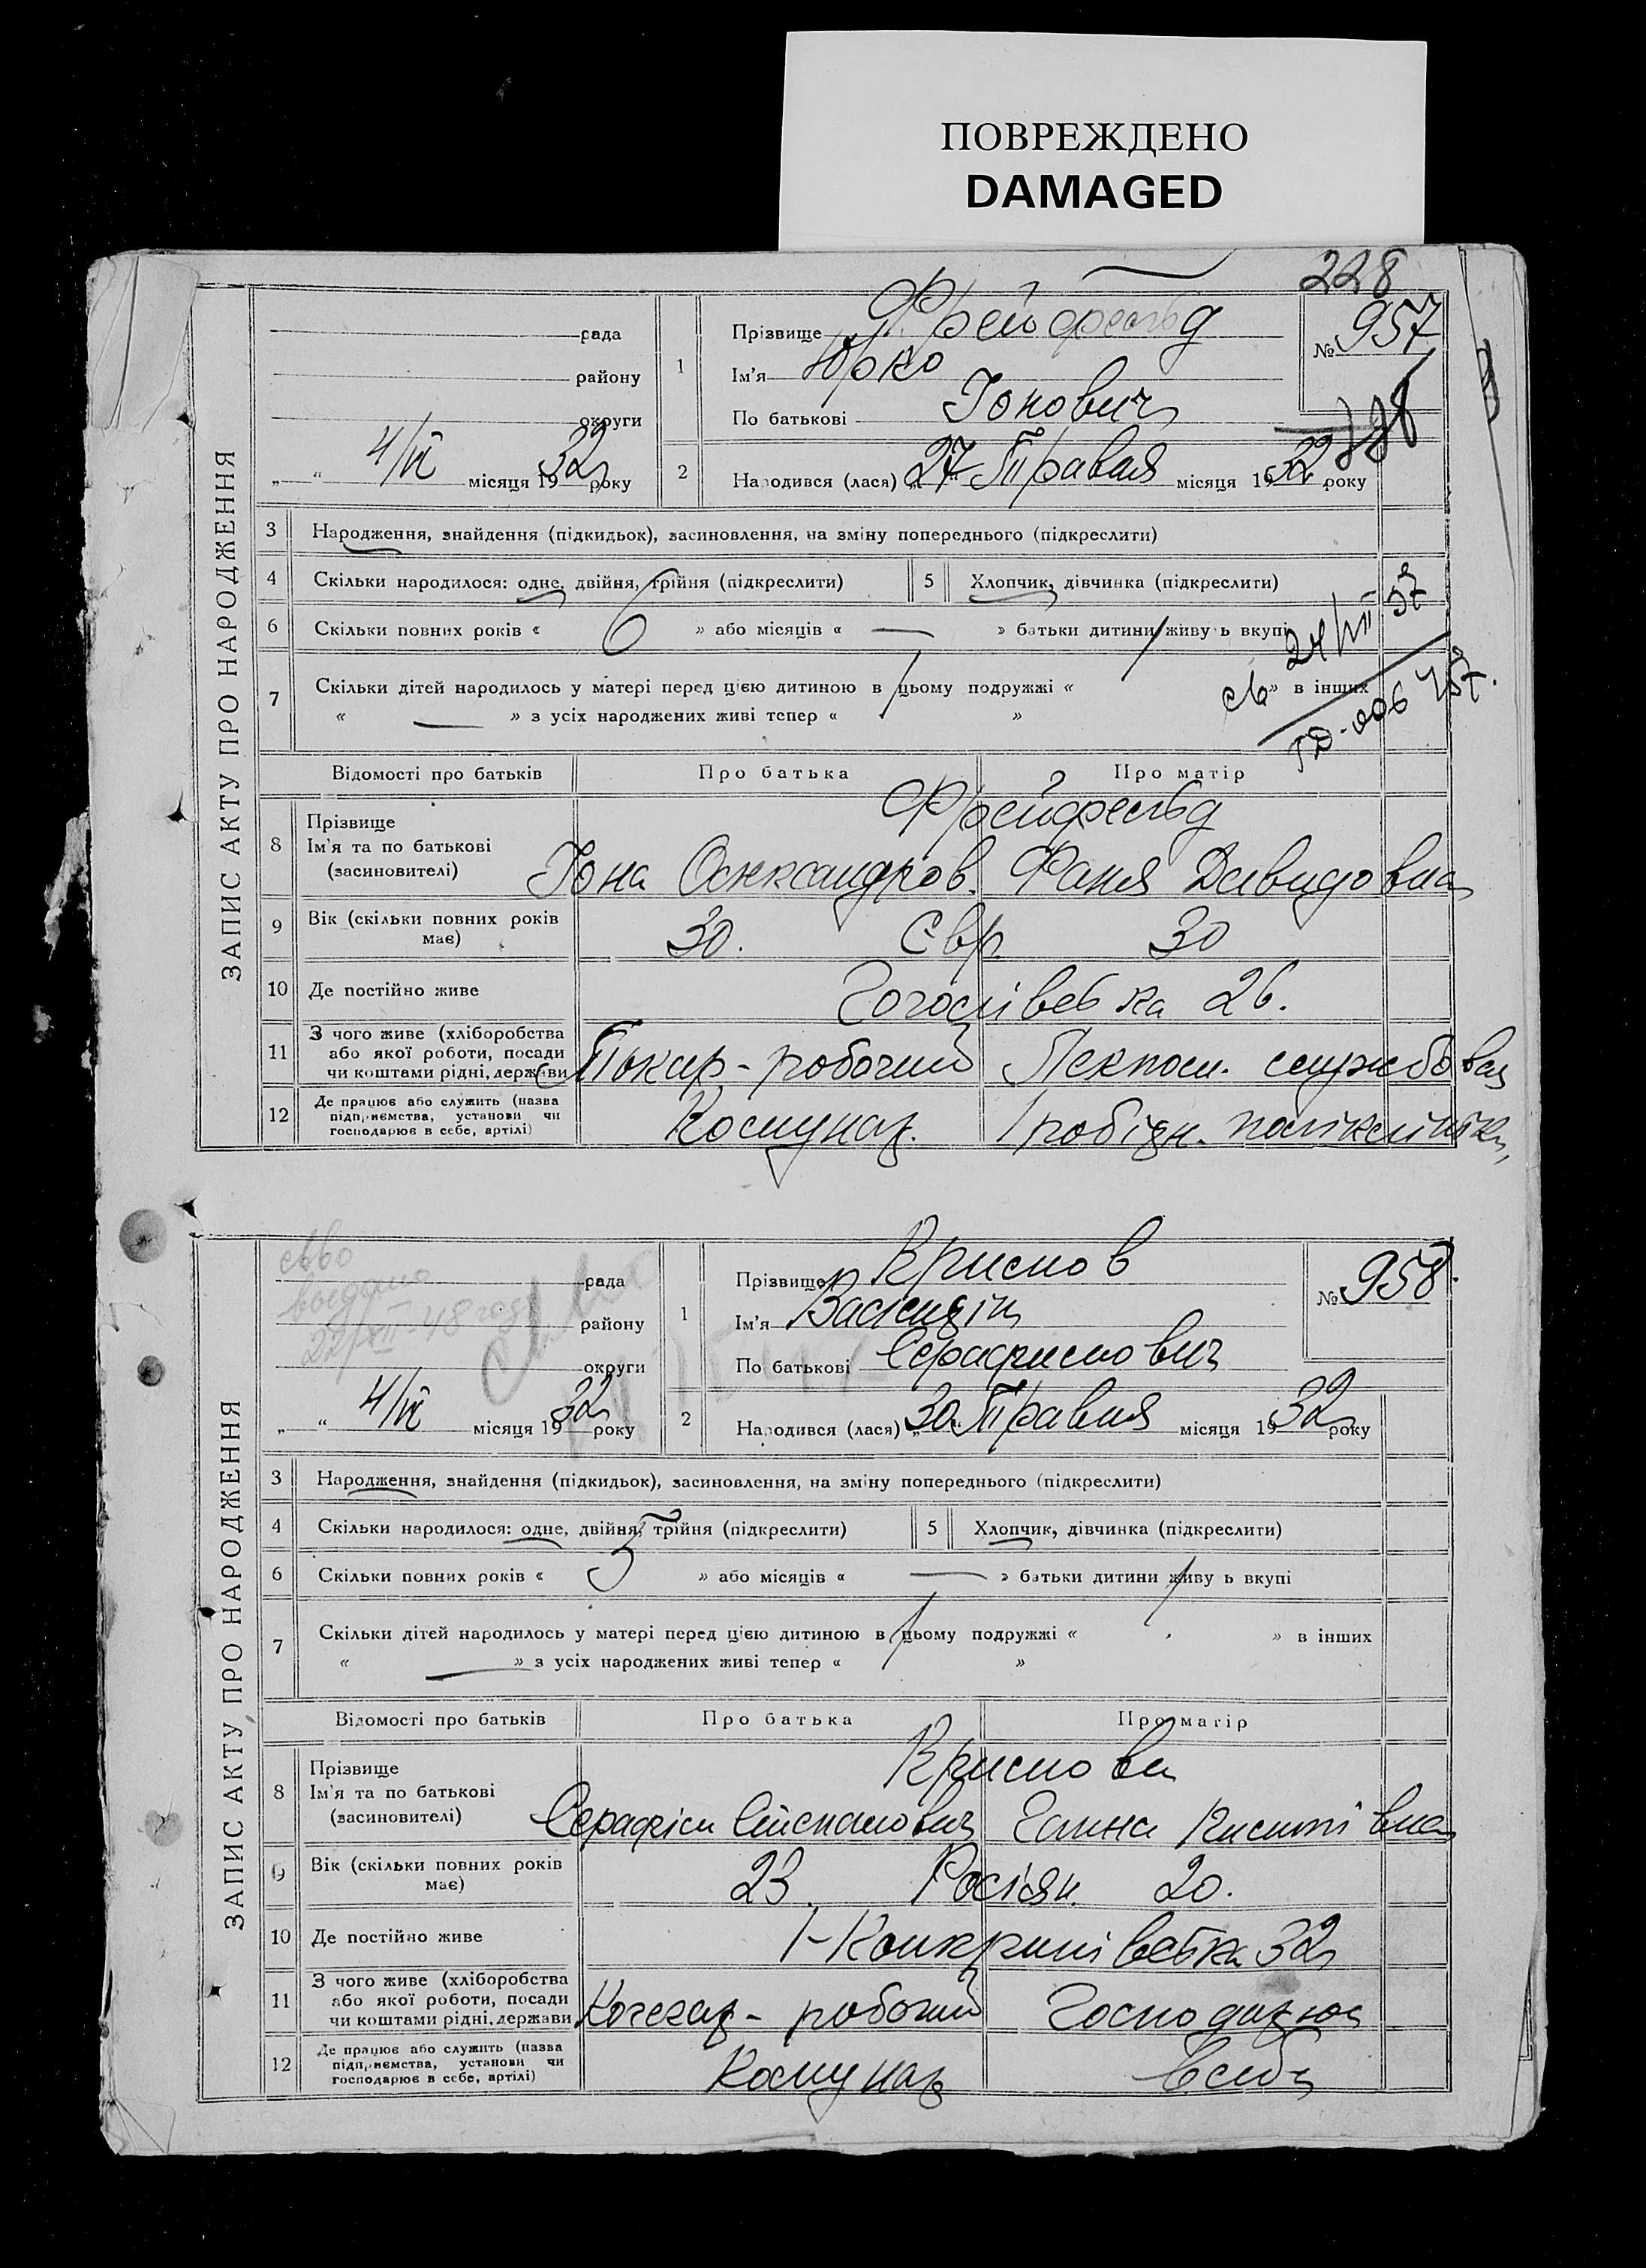 ПОВРЕЖДЕНО
DAMAGED
228
ЗАПИС АКТУ ПРО НАРОДЖЕННЯ
рада
району
округи
„ “ 4/VI місяця 1932 року
1
Прізвище Фрейфельд
Ім'я Юрко
По батькові Іонович
№ 957
228
2
Народився (лася) „27“ Травня місяця 1932 року
3 Народження, знайдення (підкидьок), засиновлення, на зміну попереднього (підкреслити)
4 Скільки народилося: одне, двійня, трійня (підкреслити)
5 Хлопчик, дівчинка (підкреслити)
6 Скільки повних років « 6 » або місяців « — » батьки дитини живуть вкупі
7 Скільки дітей народилось у матері перед цією дитиною в цьому подружжі « » в інших
« — » з усіх народжених живі тепер « »
Відомості про батьків Про батька Про матір
8 Прізвище
Ім'я та по батькові
(засиновителі)
Фрейфельд
Іона Олександров. Фаня Давидовна
9 Вік (скільки повних років має) 30. Євр. 30
10 Де постійно живе Гоголівська 26.
11 З чого живе (хліборобства або якої роботи, посади чи коштами рідні, держави
Токар - робочий
службовая
12 Де працює або служить (назва підприємства, установи чи господарює в себе, артілі)
Комунар. 1 робітн. поліклініка
ЗАПИС АКТУ ПРО НАРОДЖЕННЯ
рада
району
округи
„ “ 4/VI місяця 1932 року
1
Прізвище
Ім'я
По батькові Серафимович
№ 958.
2
Народився (лася) „30“ Травня місяця 1932 року
3 Народження, знайдення (підкидьок), засиновлення, на зміну попереднього (підкреслити)
4 Скільки народилося: одне, двійня, трійня (підкреслити)
5 Хлопчик, дівчинка (підкреслити)
6 Скільки повних років « 3 » або місяців « — » батьки дитини живуть вкупі
7 Скільки дітей народилось у матері перед цією дитиною в цьому подружжі « » в інших
« — » з усіх народжених живі тепер « »
Відомості про батьків Про батька Про матір
8 Прізвище
Ім'я та по батькові
(засиновителі)
Серафім Степанович Ганна
9 Вік (скільки повних років має) 23. Росіян. 20.
10 Де постійно живе 32
11 З чого живе (хліборобства або якої роботи, посади чи коштами рідні, держави
Кочегар - робочий Господарює
12 Де працює або служить (назва підприємства, установи чи господарює в себе, артілі)
Комунар в себе